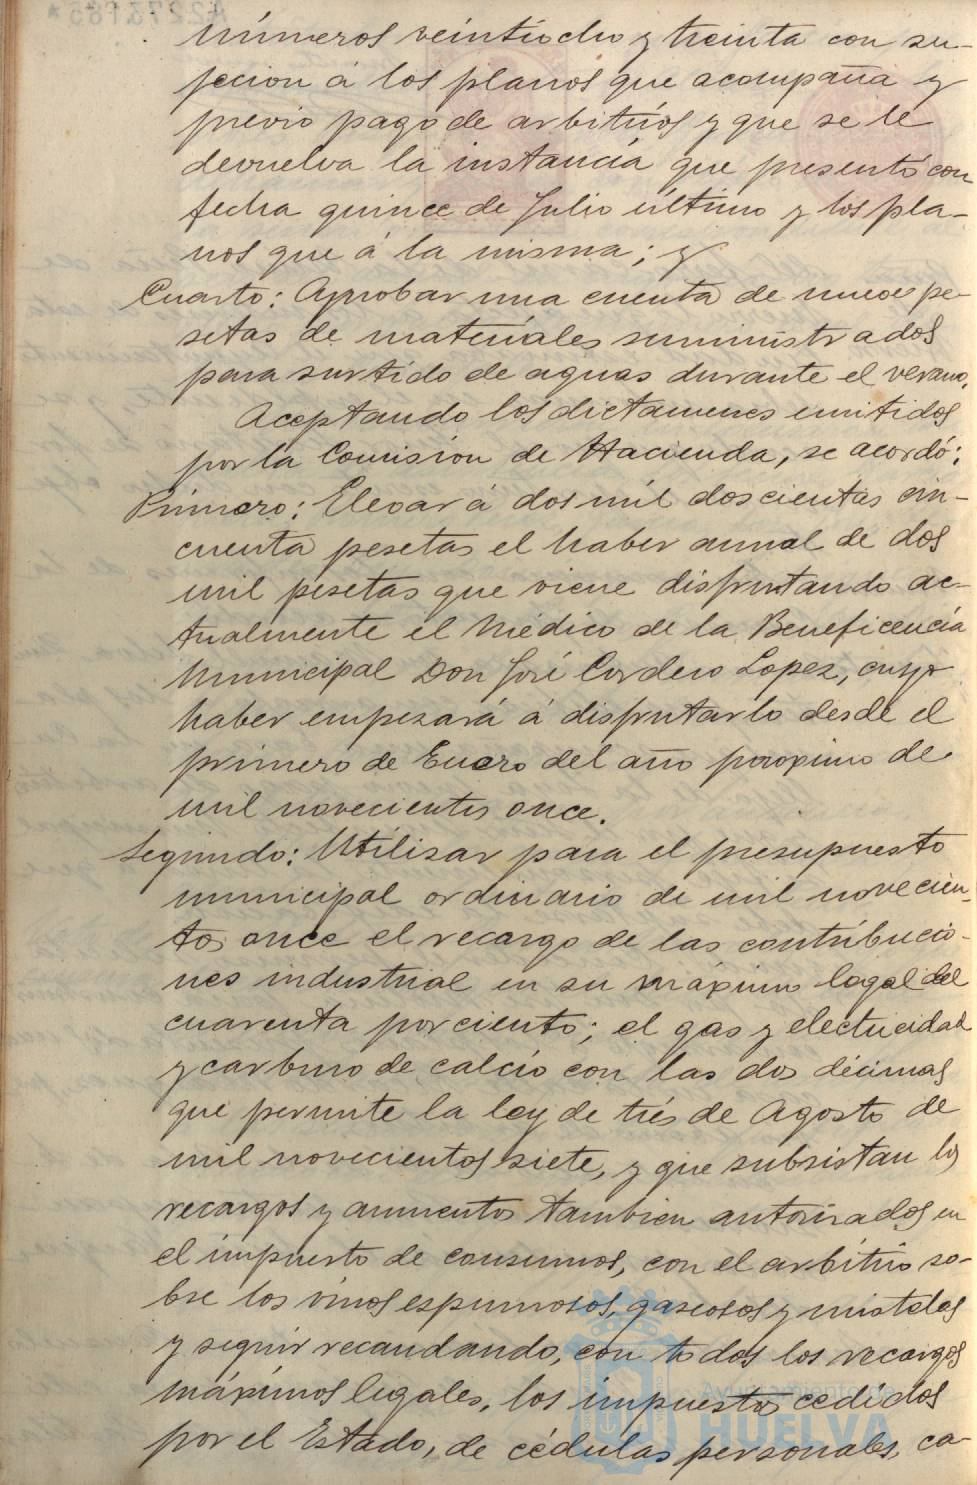 números veintiocho y treinta con su-
jecion á los planos que acompaña y
previo pago de arbitrios y que se le
devuelva la instancia que presentó con
fecha quince de Julio último y los pla-
nos que á la misma; y
Cuarto: Aprobar una cuenta de nueve pe-
setas de materiales suministrados
para surtido de aguas durante el verano.
Aceptando los dictamenes emitidos
por la Comision de Hacienda, se acordó:
Primero: Elevar á dos mil doscientas cin-
cuenta pesetas el haber annal de dos
mil pesetas que viene disfrutando ac-
tualmente el Médico de la Beneficencia
Municipal Don José Cordero Lopez, cuyo
haber empezará á disfrutarlo desde el
primero de Enero del año proximo de
mil novecientos once.
Segundo: Utilizar para el presupuesto
municipal ordinario de mil novecien-
tos once el recargo de las contribucio-
nes industrial en su máximo legal del
cuarenta por ciento; el gas y electricidad
y carburo de calcio con las dos décimas
que permite la ley de trés de Agosto de
mil novecientos siete, y que subsistan los
recargos y aumentos tambien autorizados en
el impuesto de consumos, con el arbitrio so-
bre los vinos espumosos, gaseosos y mistelas
y seguir recaudando, con todos los recargos
máximos legales, los impuestos cedidos
por el Estado, de cédulas personales, ca-
Ayuntamiento de
HUELVA